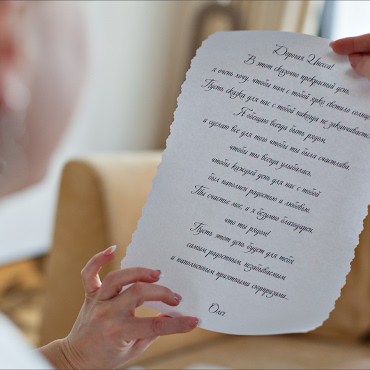 "Дорогая Инесса!
В этот сказочно прекрасный день,
я очень хочу, чтобы нам с тобой ярко светило солнце.
Пусть сказка для нас с тобой никогда не заканчивается.
Я обещаю всегда быть рядом,
и сделаю все для того чтобы ты была счастлива,
чтобы ты всегда улыбалась,
чтобы каждый день для нас с тобой
был наполнен радостью и любовью.
Ты счастье мое, и я безумно благодарен,
что ты рядом!
Пусть этот день будет для тебя
самым радостным, незабываемым
и наполненным приятными сюрпризами...
Олег